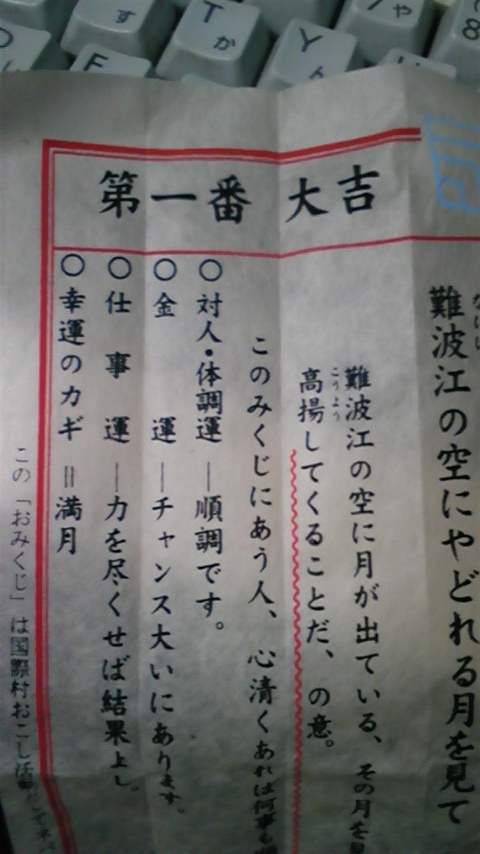 す
T
か
や
Y
8
第一番 大吉
難波江の空にやどれる月を見て
難波江の空に月が出ている、その月を見
こうよう
高揚してくることだ、の意。
このみくじにあう人、心清くあれば何事も
○対人・体調運―順調です。
○金運―チャンス大いにあります。
○仕事運―力を尽くせば結果よし。
○幸運のカギ=満月
この「おみくじ」は国際村おこし活動としてネパ